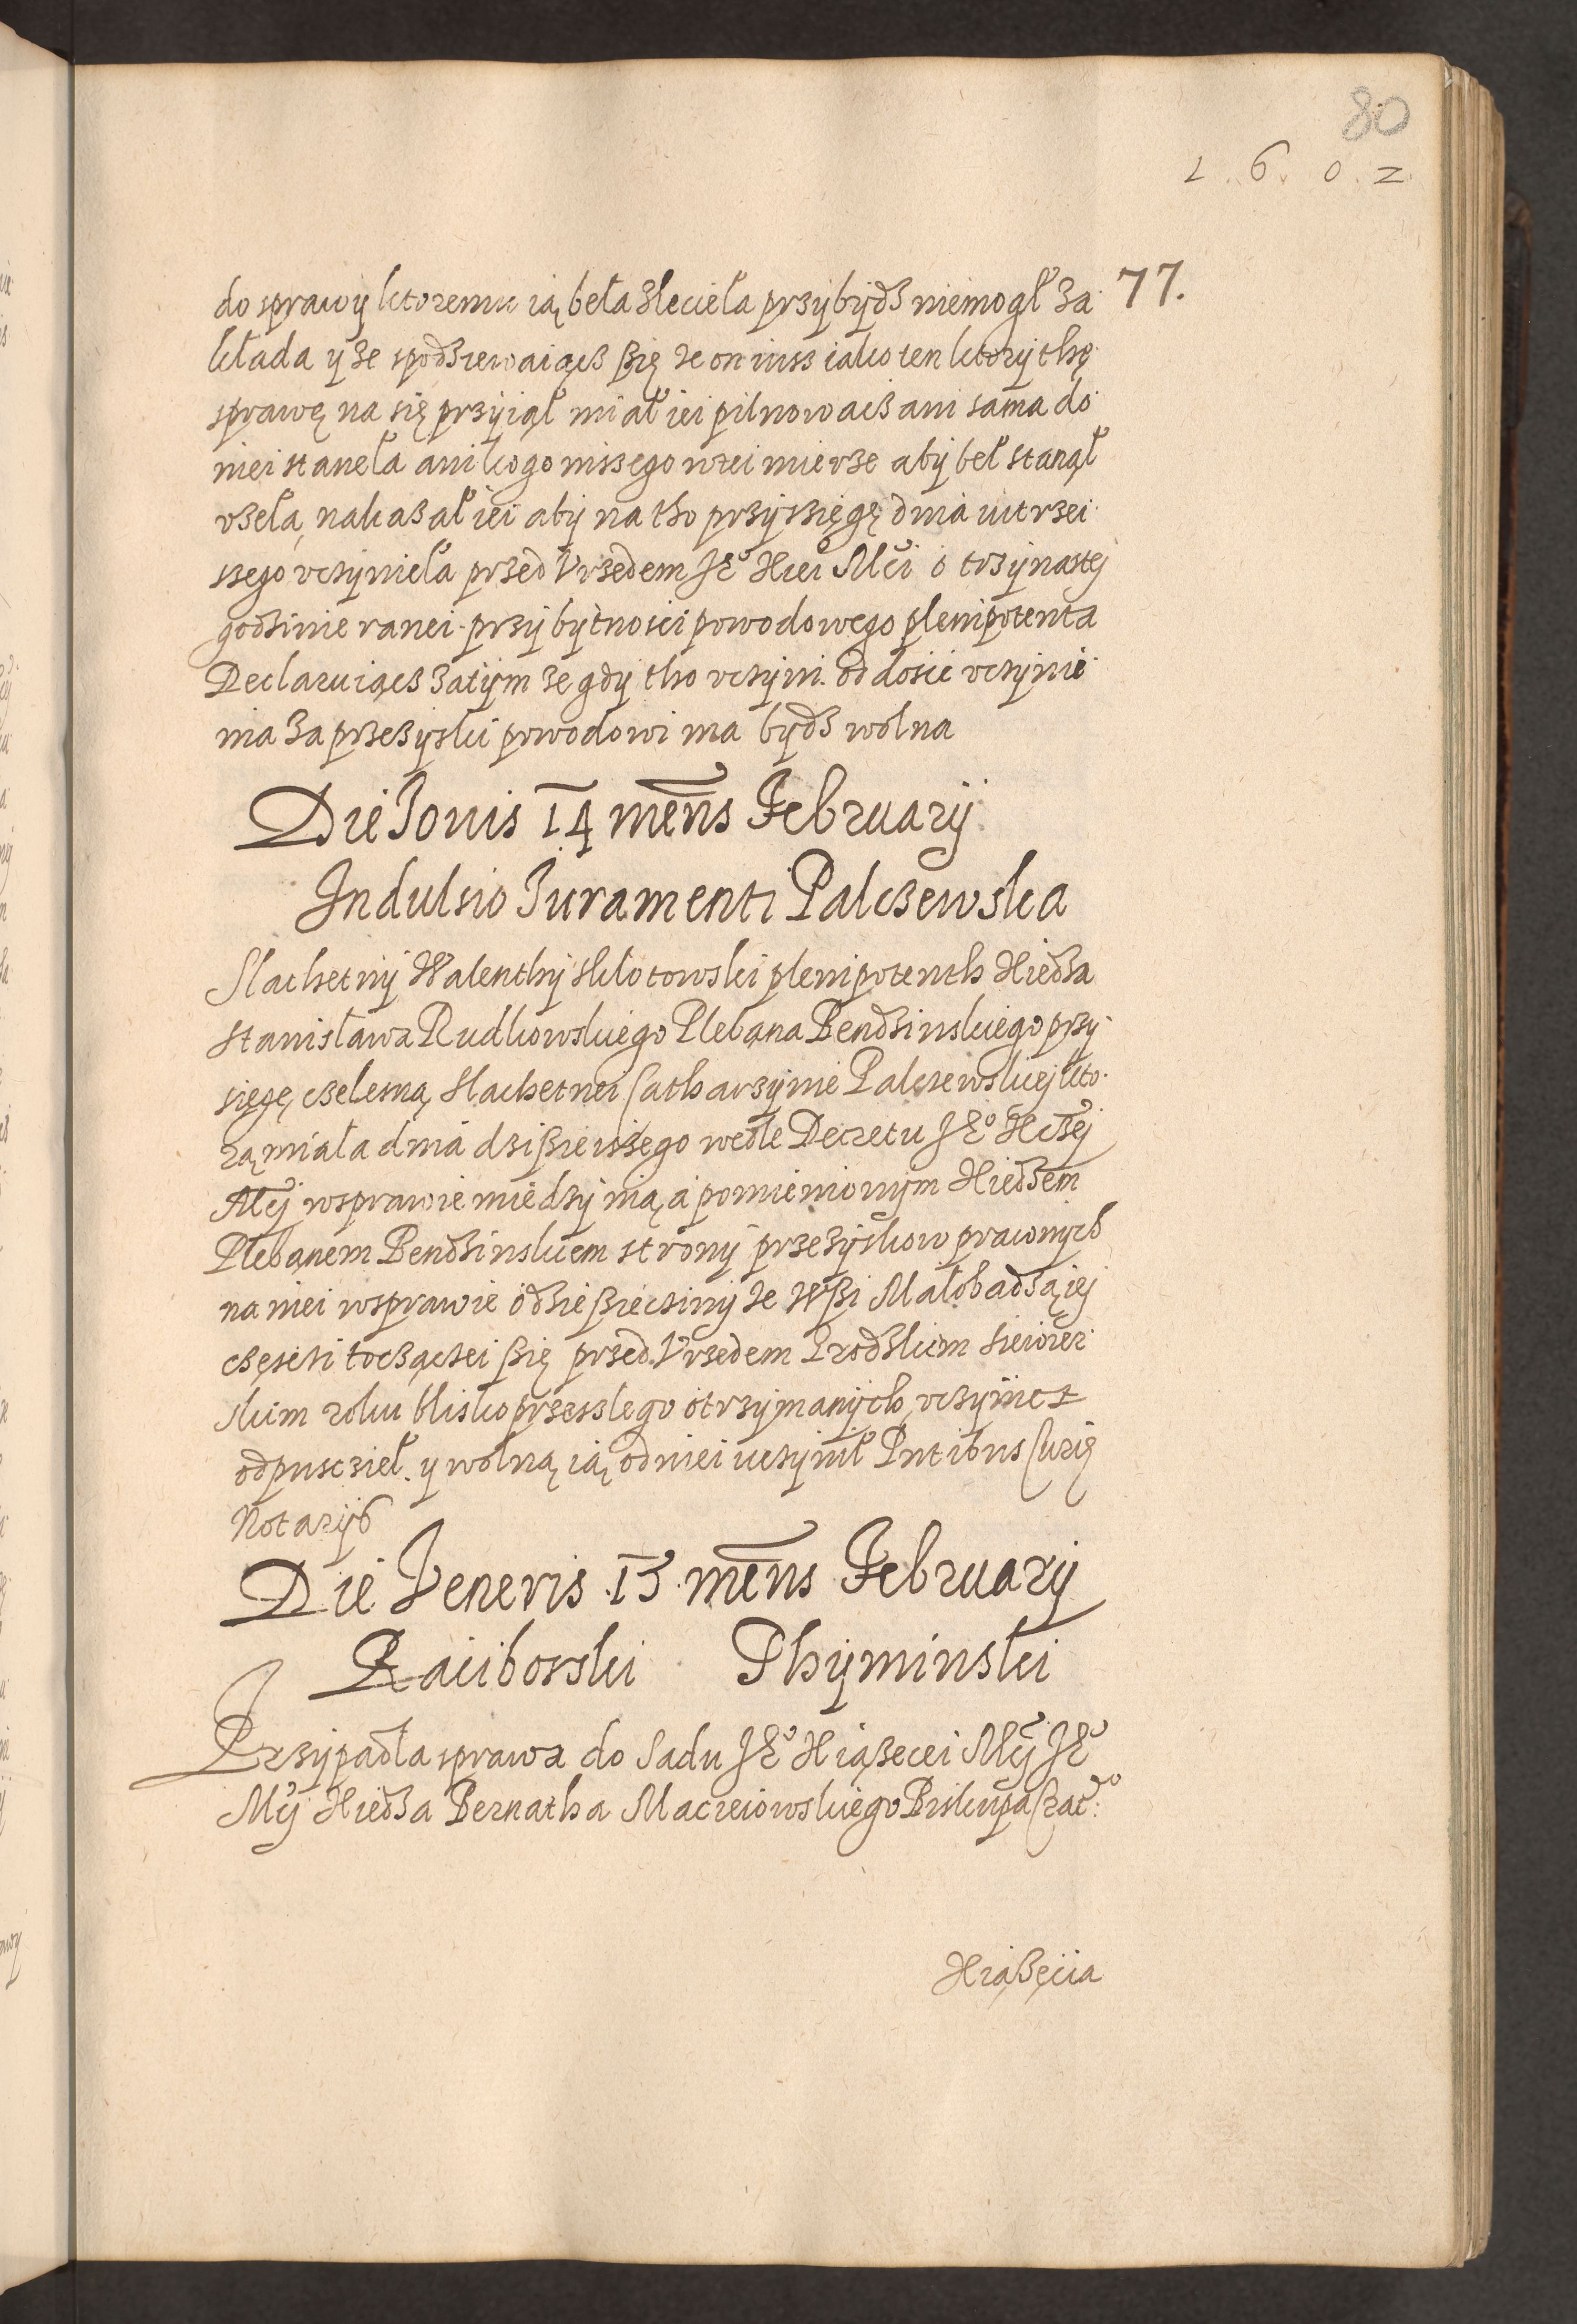 80
1.6.0.2.
77.
do sprawÿ ktoremu ią beła zleciełа przÿbÿdz niemogł za
kłada ÿ ze spodziewaiącz się ze on iusz iako ten ktorÿ thę
sprawę na się przÿiął miał iei pilnowacz ani sama do
niei staneła ani kogo inszego wtei mierze abÿ beł stanął
vzeła, nakazał iei abÿ na tho przÿsięgę dnia iutrzei
szego vczÿnieła przed Vrzedem Je° Xiei Mci o trzÿnastej
godzinie ranei przÿ bÿtnosci powodowego plenipotenta
Declaruiącz zatÿm ze gdÿ tho vczÿni. od dosic vczÿnie
nia za przezÿski powodowi ma bÿdz wolna
Die Jouis 14 mens Februarÿ
Indulsio Juramenti Palczewska
Slachetnÿ Walenthÿ Hklotowski plenipotenth Xiedza
Stanisława Rudkowskiego Plebana Bendzinskiego przÿ
sięgę, czelesną, Slachetnei Catharzÿnie Palczewskiej kto
rą miała dnia dzisieiszego wedle Decretu Je° Xczej
Mcÿ wsprawie miedzÿ nią, a pomienionÿm Xiedzem
Plebanem Bendzinskiem stronÿ przezÿskow prawnÿch
na niei wsprawie o dziesiecinÿ ze Wsi Małobadzą iej
częsci toczączei się przed Vrzedem Grodzkim Siewier
skim roku blisko przeszlego otrzÿmanÿch, vczÿnicz
odpusczieł. ÿ wolną, ią, od niei uczÿnił Pntibus Curię
Notarÿs
Die Veneris 15 mens Februarÿ
Raciborski Thÿminski
Przÿpadła sprawa do Sadu Je° Xiązecei Mcÿ Je°
Mcÿ Xiedza Bernatha Macieiowskiego Biskupa Crac°:
Xiązęcia